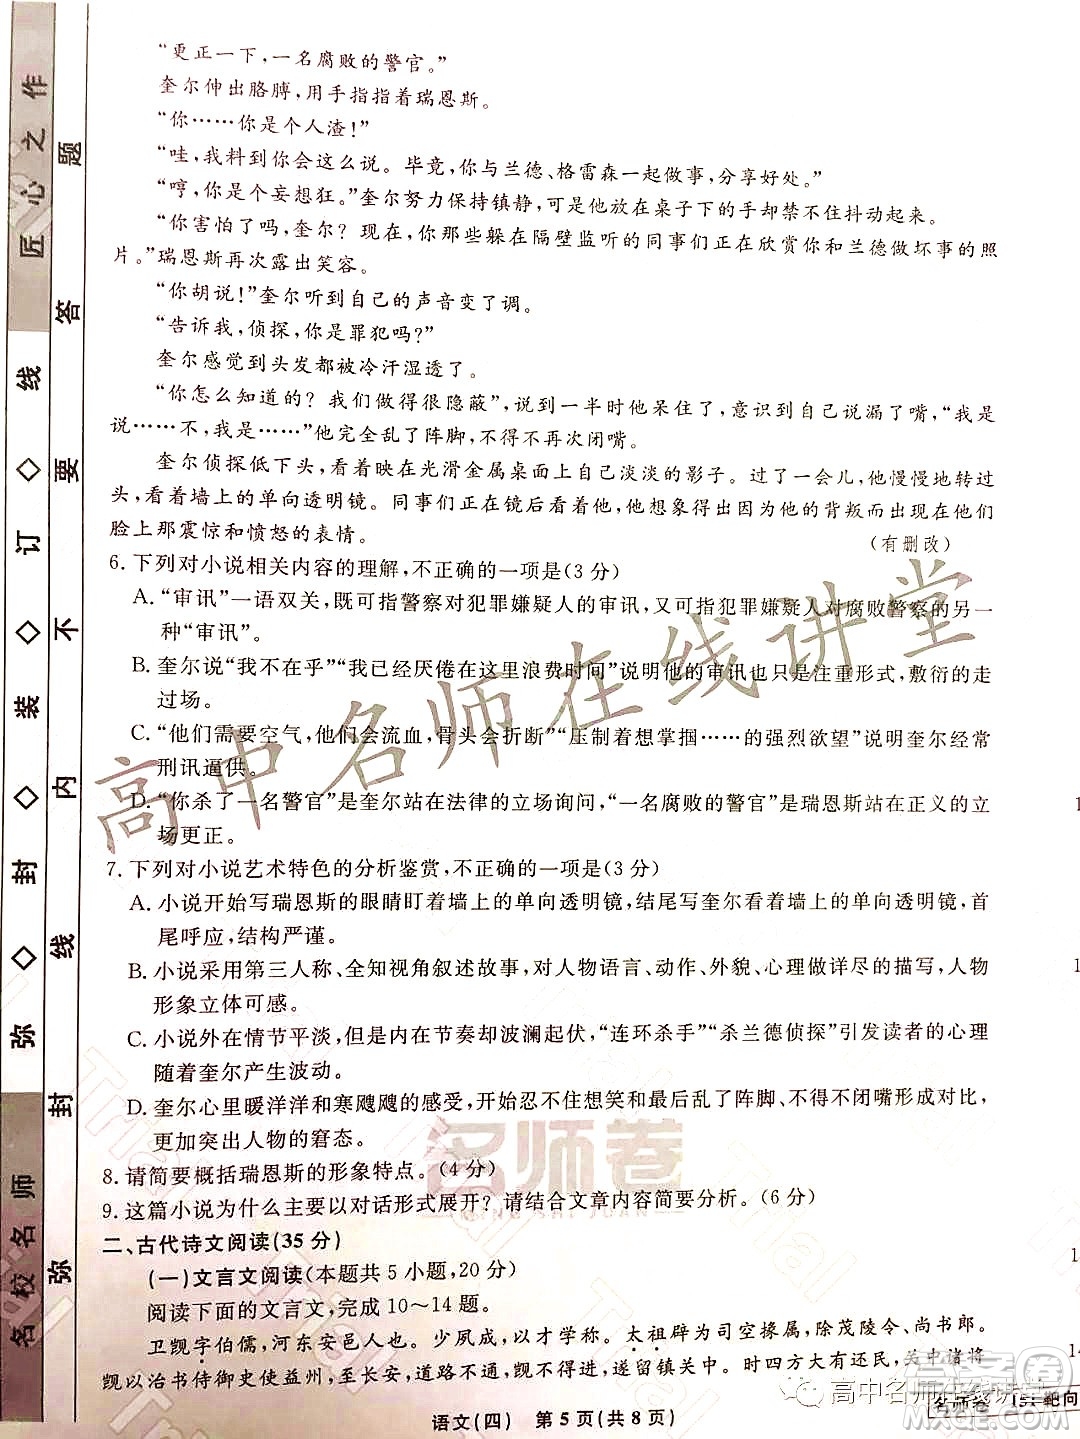 “更正一下，一名腐败的警官。”
奎尔伸出胳膊，用手指指着瑞恩斯。
“你……你是个人渣！”
“哇，我料到你会这么说。毕竟，你与兰德、格雷森一起做事，分享好处。”
“哼，你是个妄想狂。”奎尔努力保持镇静，可是他放在桌子下的手却禁不住抖动起来。
“你害怕了吗，奎尔？现在，你的那些躲在隔壁监听的同事们正在欣赏你和兰德做坏事的照
片。”瑞恩斯再次露出笑容。
“你胡说！”奎尔听到自己的声音变了调。
“告诉我，侦探，你是罪犯吗？”
奎尔感觉到头发都被冷汗湿透了。
“你怎么知道的？我们做得很隐蔽”，说到一半时他呆住了，意识到自己说漏了嘴，“我是
说……不，我是……”他完全乱了阵脚，不得不再次闭嘴。
奎尔侦探低下头，看着映在光滑金属桌面上自己淡淡的影子。过了一会儿，他慢慢地转过
头，看着墙上的单向透明镜。同事们正在镜后看着他，他想象得出因为他的背叛而在他们
脸上那震惊和愤怒的表情。
（有删改）
6. 下列对小说相关内容的理解，不正确的一项是（3 分）
A. “审讯”一语双关，既可指警察对犯罪嫌疑人的审讯，又可指犯罪嫌疑人对腐败警察的另一
种“审讯”。
B. 奎尔说“我不在乎”“我已经厌倦在这里浪费时间”说明他的审讯也只是注重形式，敷衍的走
过场。
C. “他们需要空气，他们会流血，骨头会折断”“压制着想掌掴……的强烈欲望”说明奎尔经常
刑讯逼供。
D. “你杀了一名警官”是奎尔站在法律的立场询问，“一名腐败的警官”是瑞恩斯站在正义的立
场更正。
7. 下列对小说艺术特色的分析鉴赏，不正确的一项是（3 分）
A. 小说开始写瑞恩斯的眼睛盯着墙上的单向透明镜，结尾写奎尔看着墙上的单向透明镜，首
尾呼应，结构严谨。
B. 小说采用第三人称、全知视角叙述故事，对人物语言、动作、外貌、心理做详尽的描写，人物
形象立体可感。
C. 小说外在情节平淡，但内在节奏却波澜起伏，“连环杀手”“杀兰德侦探”引发读者的心理
随着奎尔产生波动。
D. 奎尔心里暖洋洋和寒飕飕的感受，开始忍不住想笑到最后乱了阵脚、不得不闭嘴形成对比，
更加突出人物的窘态。
8. 请简要概括瑞恩斯的形象特点。（4 分）
9. 这篇小说为什么主要以对话形式展开？请结合文章内容简要分析。（6 分）
二、古代诗文阅读（35 分）
（一）文言文阅读（本题共 5 小题，20 分）
阅读下面的文言文，完成 10～14 题。
卫觊字伯儒，河东安邑人也。少夙成，以才学称。太祖辟为司空掾属，除茂陵令、尚书郎。
觊以治书侍御史使益州，至长安，道路不通，觊不得进，遂留镇关中。时四方大有还民，关中诸将
语文（四） 第 5 页（共 8 页）
匠心之作
名校名师
弥 封 装 订 线
弥 封 线 内 不 要 答 题
高中名师在线讲堂
名师卷
MING SHI JUAN
Trial
高中名师在线讲堂
答案卷
名师卷
靶向